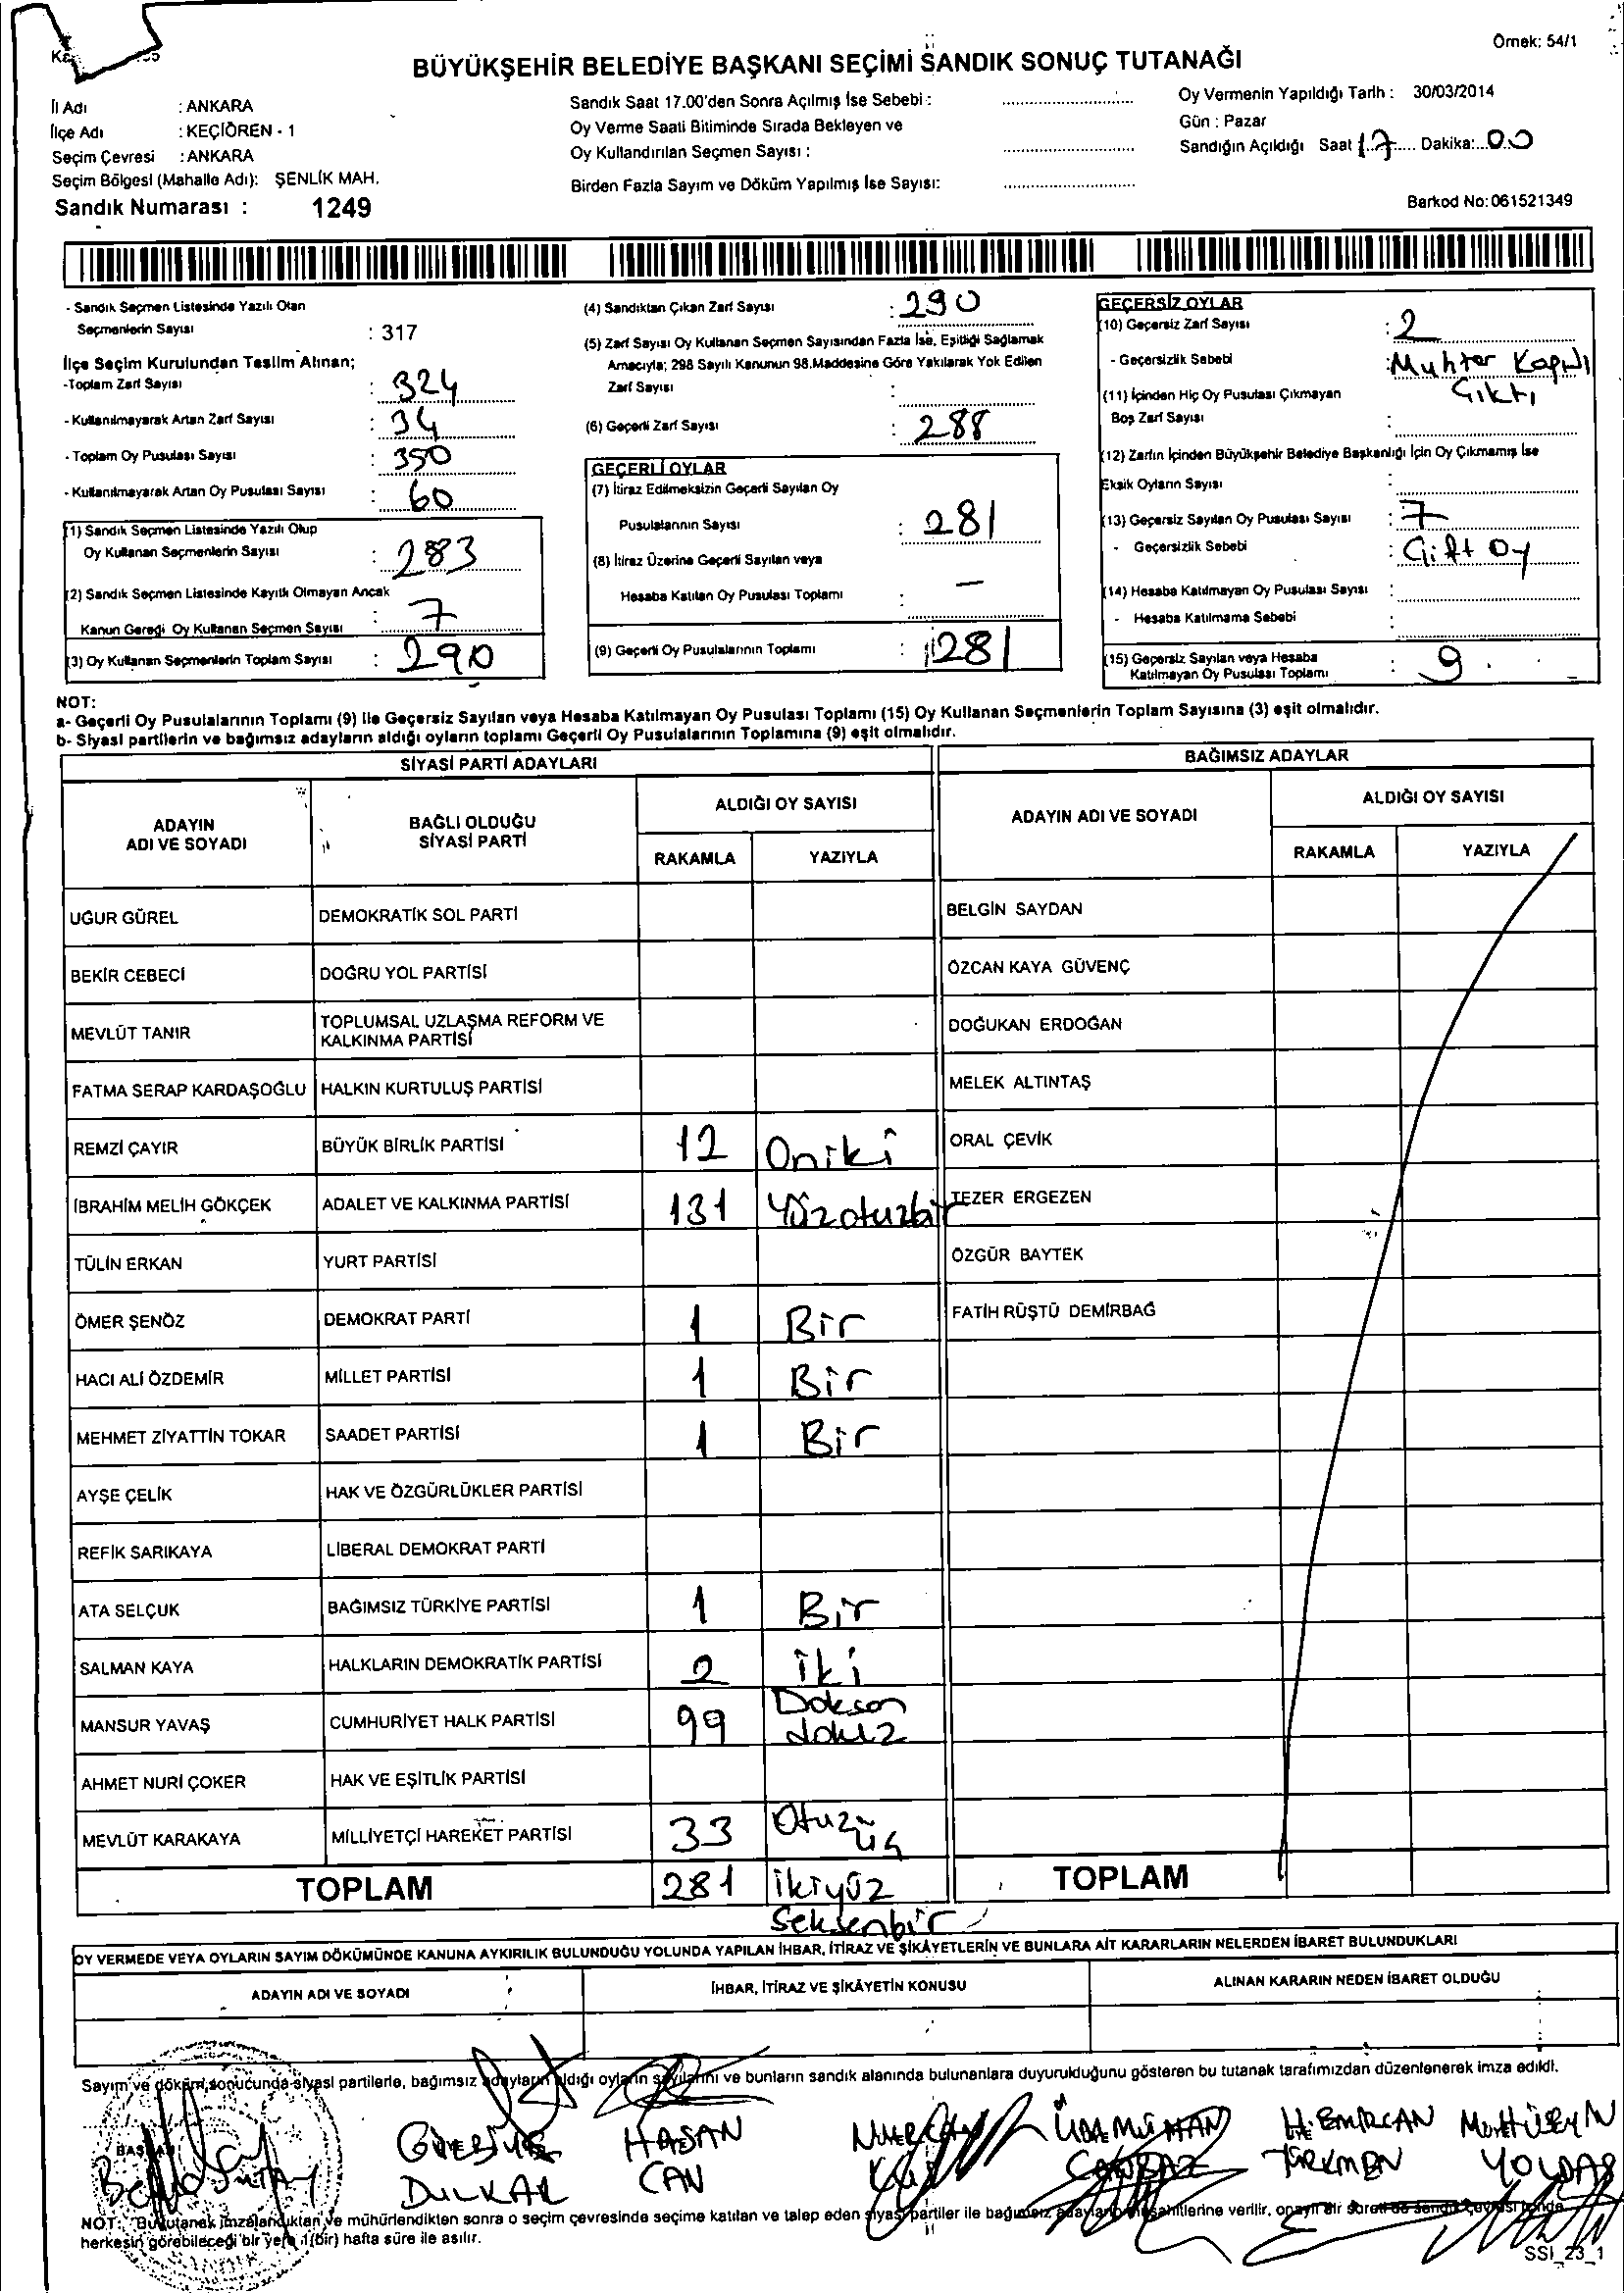 Örnek: 54/1
BÜYÜKŞEHİR BELEDİYE BAŞKANI SEÇİMİ SANDIK SONUÇ TUTANAĞI
İl Adı : ANKARA
İlçe Adı : KEÇİÖREN - 1
Seçim Çevresi : ANKARA
Seçim Bölgesi (Mahalle Adı): ŞENLİK MAH.
Sandık Numarası : 1249
Sandık Saat 17.00'den Sonra Açılmış İse Sebebi :
Oy Verme Saati Bitiminde Sırada Bekleyen ve
Oy Kullandırılan Seçmen Sayısı :
Birden Fazla Sayım ve Döküm Yapılmış İse Sayısı:
Oy Vermenin Yapıldığı Tarih : 30/03/2014
Gün : Pazar
Sandığın Açıldığı Saat 17 Dakika: 00
Barkod No: 061521349
- Sandık Seçmen Listesinde Yazılı Olan
Seçmenlerin Sayısı : 317
İlçe Seçim Kurulundan Teslim Alınan;
-Toplam Zarf Sayısı : 324
- Kullanılmayarak Artan Zarf Sayısı : 34
- Toplam Oy Pusulası Sayısı : 350
- Kullanılmayarak Artan Oy Pusulası Sayısı : 60
(1) Sandık Seçmen Listesinde Yazılı Olup
Oy Kullanan Seçmenlerin Sayısı : 283
(2) Sandık Seçmen Listesinde Kayıtlı Olmayan Ancak
Kanun Gereği Oy Kullanan Seçmen Sayısı : 7
(3) Oy Kullanan Seçmenlerin Toplam Sayısı : 290
(4) Sandıktan Çıkan Zarf Sayısı : 290
(5) Zarf Sayısı Oy Kullanan Seçmen Sayısından Fazla İse, Eşitliği Sağlamak
Amacıyla; 298 Sayılı Kanunun 98.Maddesine Göre Yakılarak Yok Edilen
Zarf Sayısı :
(6) Geçerli Zarf Sayısı : 288
GEÇERLİ OYLAR
(7) İtiraz Edilmeksizin Geçerli Sayılan Oy
Pusulalarının Sayısı : 281
(8) İtiraz Üzerine Geçerli Sayılan veya
Hesaba Katılan Oy Pusulası Toplamı : -
(9) Geçerli Oy Pusulalarının Toplamı : 281
GEÇERSİZ OYLAR
(10) Geçersiz Zarf Sayısı : 2
- Geçersizlik Sebebi : Muhtar
Çıktı
(11) İçinden Hiç Oy Pusulası Çıkmayan
Boş Zarf Sayısı :
(12) Zarfın İçinden Büyükşehir Belediye Başkanlığı İçin Oy Çıkmamış İse
Eksik Oyların Sayısı :
(13) Geçersiz Sayılan Oy Pusulası Sayısı : 7
- Geçersizlik Sebebi : Çift Oy
(14) Hesaba Katılmayan Oy Pusulası Sayısı :
- Hesaba Katılmama Sebebi :
(15) Geçersiz Sayılan veya Hesaba
Katılmayan Oy Pusulası Toplamı : 9
NOT:
a- Geçerli Oy Pusulalarının Toplamı (9) ile Geçersiz Sayılan veya Hesaba Katılmayan Oy Pusulası Toplamı (15) Oy Kullanan Seçmenlerin Toplam Sayısına (3) eşit olmalıdır.
b- Siyasi partilerin ve bağımsız adayların aldığı oyların toplamı Geçerli Oy Pusulalarının Toplamına (9) eşit olmalıdır.
SİYASİ PARTİ ADAYLARI
ADAYIN ADI VE SOYADI BAĞLI OLDUĞU SİYASİ PARTİ ALDIĞI OY SAYISI
RAKAMLA YAZIYLA
UĞUR GÜREL DEMOKRATİK SOL PARTİ
BEKİR CEBECİ DOĞRU YOL PARTİSİ
MEVLÜT TANIR TOPLUMSAL UZLAŞMA REFORM VE KALKINMA PARTİSİ
FATMA SERAP KARDAŞOĞLU HALKIN KURTULUŞ PARTİSİ
REMZİ ÇAYIR BÜYÜK BİRLİK PARTİSİ 12 Oniki
İBRAHİM MELİH GÖKÇEK ADALET VE KALKINMA PARTİSİ 131 Yüzotuzbir
TÜLİN ERKAN YURT PARTİSİ
ÖMER ŞENÖZ DEMOKRAT PARTİ 1 Bir
HACI ALİ ÖZDEMİR MİLLET PARTİSİ 1 Bir
MEHMET ZİYATTİN TOKAR SAADET PARTİSİ 1 Bir
AYŞE ÇELİK HAK VE ÖZGÜRLÜKLER PARTİSİ
REFİK SARIKAYA LİBERAL DEMOKRAT PARTİ
ATA SELÇUK BAĞIMSIZ TÜRKİYE PARTİSİ 1 Bir
SALMAN KAYA HALKLARIN DEMOKRATİK PARTİSİ 2 İki
MANSUR YAVAŞ CUMHURİYET HALK PARTİSİ 99 Doksan dokuz
AHMET NURİ ÇOKER HAK VE EŞİTLİK PARTİSİ
MEVLÜT KARAKAYA MİLLİYETÇİ HAREKET PARTİSİ 33 Otuz üç
TOPLAM 281 İkiyüz Seksenbir
BAĞIMSIZ ADAYLAR
ADAYIN ADI VE SOYADI ALDIĞI OY SAYISI
RAKAMLA YAZIYLA
BELGİN SAYDAN
ÖZCAN KAYA GÜVENÇ
DOĞUKAN ERDOĞAN
MELEK ALTINTAŞ
ORAL ÇEVİK
TEZER ERGEZEN
ÖZGÜR BAYTEK
FATİH RÜŞTÜ DEMİRBAĞ
TOPLAM
OY VERMEDE VEYA OYLARIN SAYIM DÖKÜMÜNDE KANUNA AYKIRILIK BULUNDUĞU YOLUNDA YAPILAN İHBAR, İTİRAZ VE ŞİKÂYETLERİN VE BUNLARA AİT KARARLARIN NELERDEN İBARET BULUNDUKLARI
ADAYIN ADI VE SOYADI İHBAR, İTİRAZ VE ŞİKÂYETİN KONUSU ALINAN KARARIN NEDEN İBARET OLDUĞU
Sayım ve döküm sonucunda siyasi partilerle, bağımsız adayların aldığı oyların sayılarını ve bunların sandık alanında bulunanlara duyurulduğunu gösteren bu tutanak tarafımızdan düzenlenerek imza edildi.
HASAN H. EMİRCAN
CAN TÜRKMEN YOLDAŞ
NOT: Bu tutanak imzalandıktan ve mühürlendikten sonra o seçim çevresinde seçime katılan ve talep eden siyasi partiler ile bağımsız adayların müşahitlerine verilir, onaylı bir sureti de
herkesin görebileceği bir yere 1(bir) hafta süre ile asılır.
SSI_23_1